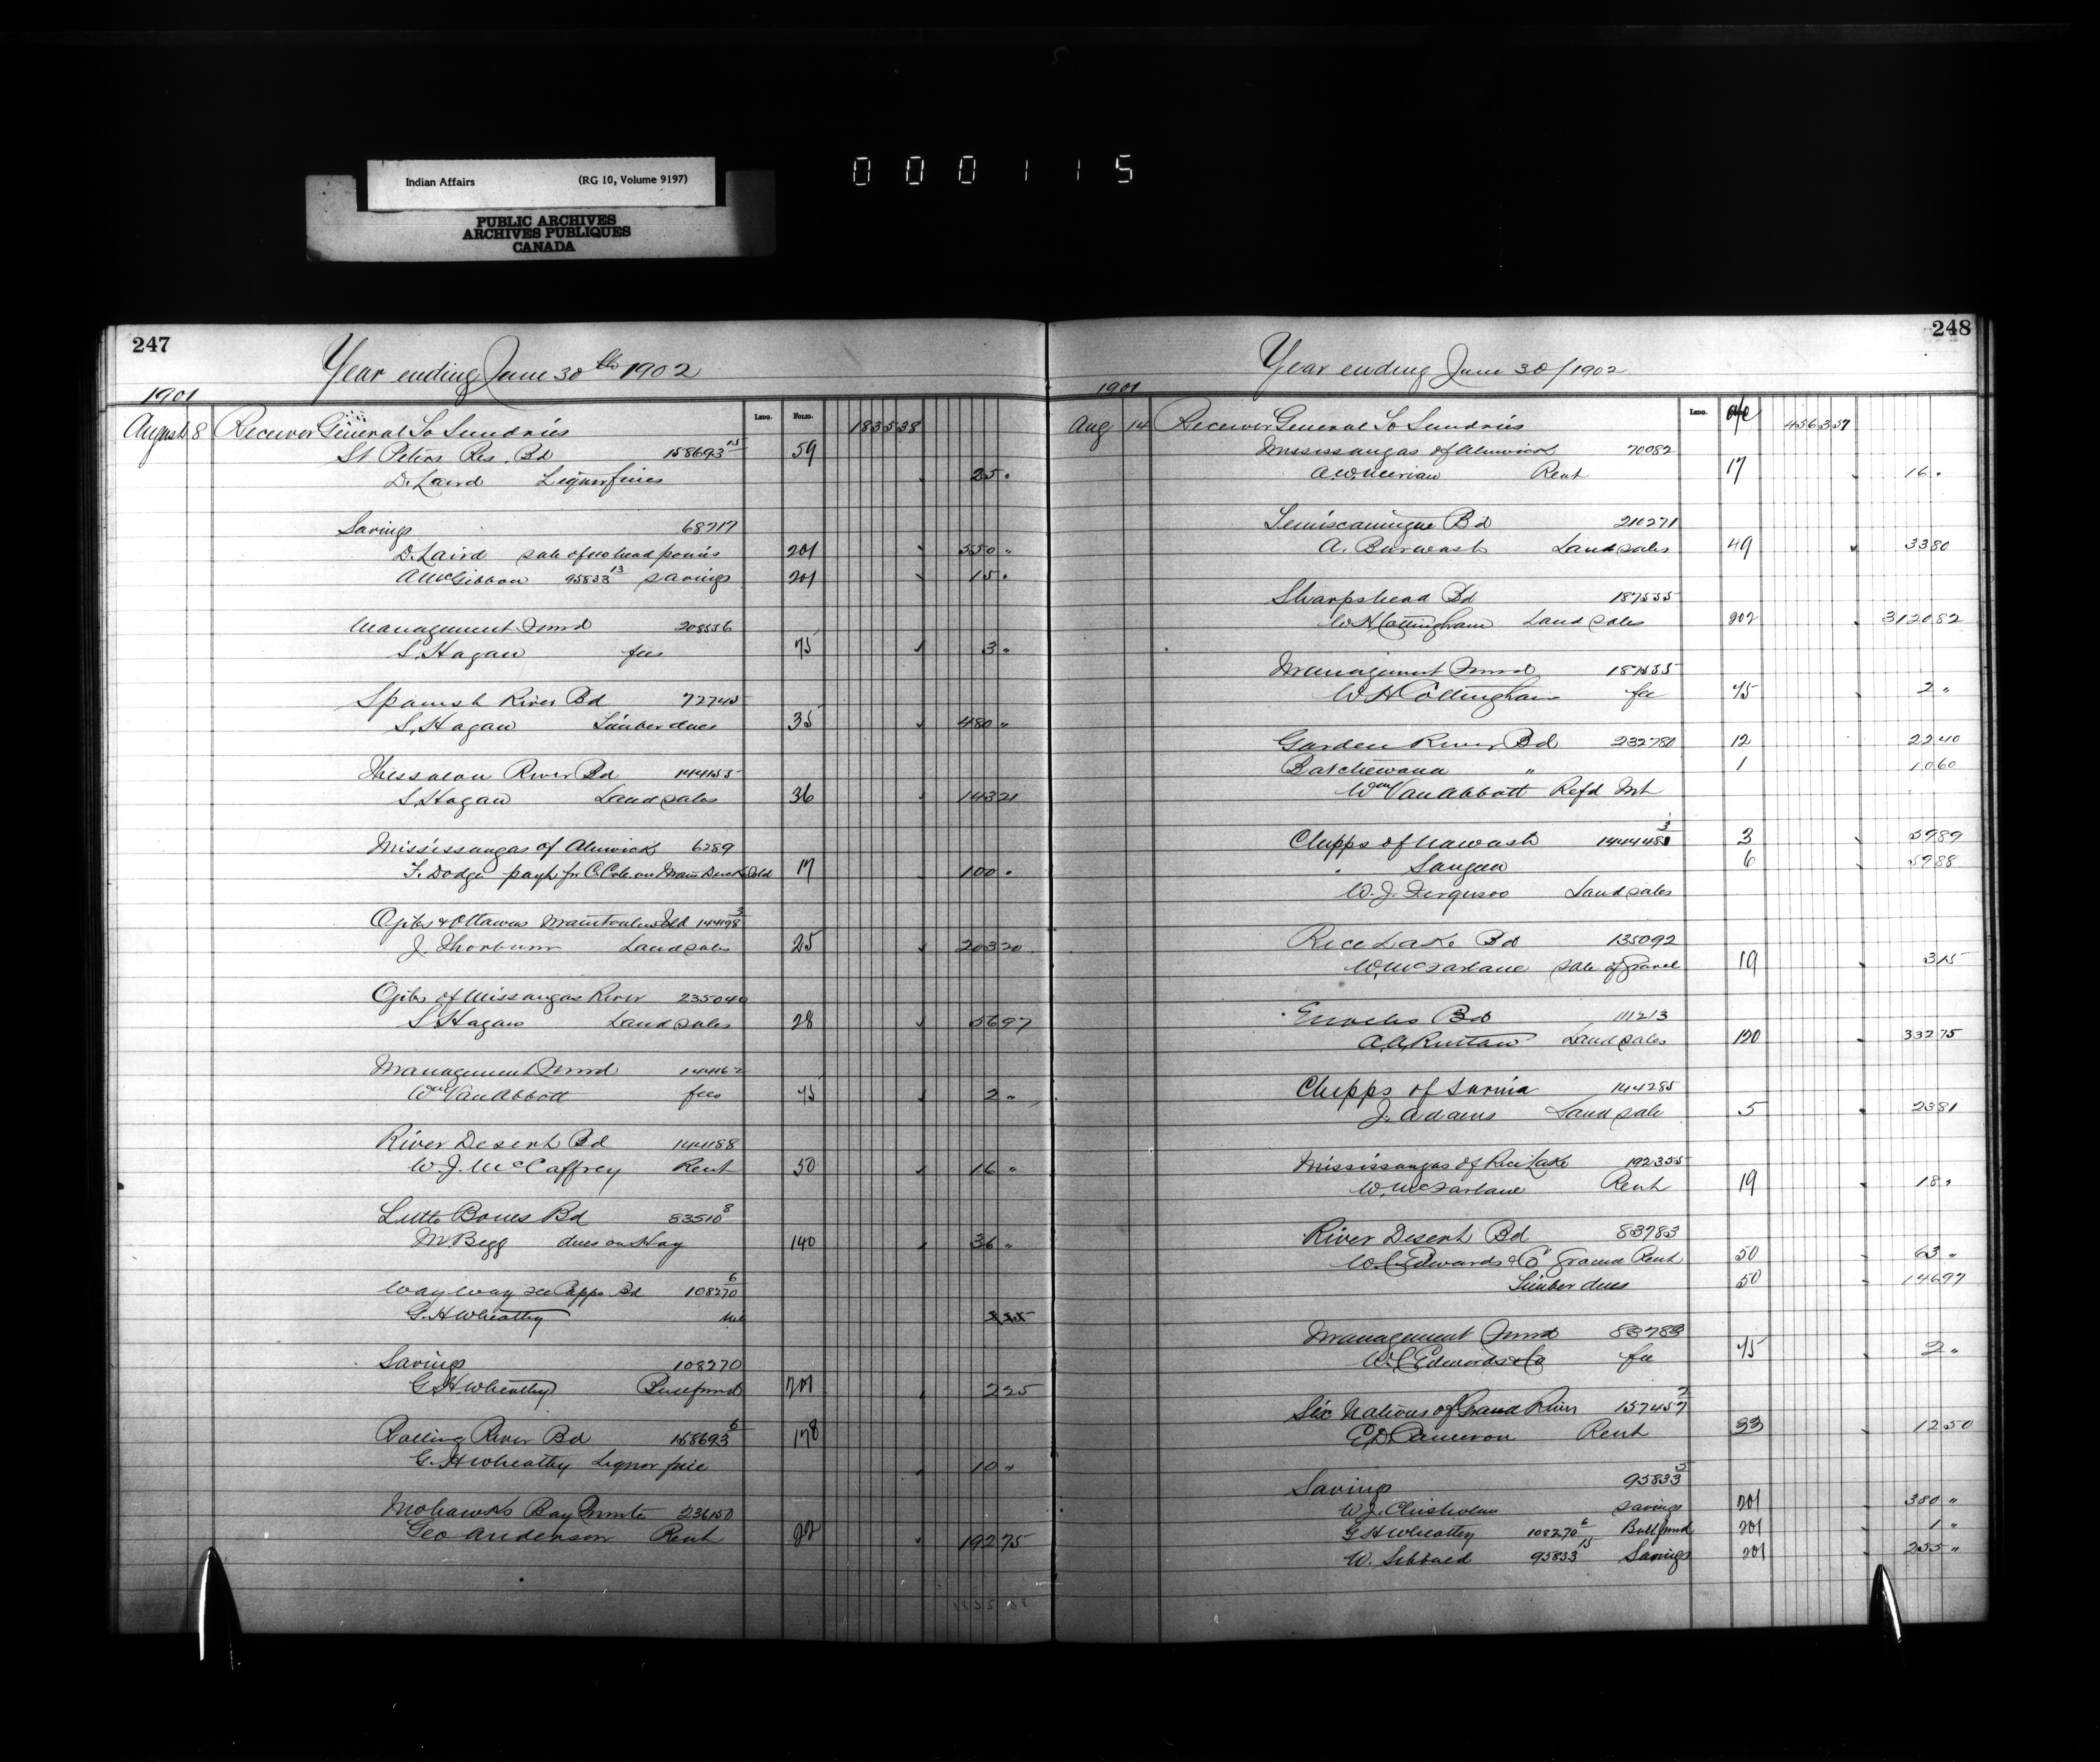 000115
Indian Affairs (RG 10, Volume 9197)
PUBLIC ARCHIVES
ARCHIVES PUBLIQUES
CANADA
247
Year ending June 30th 1902
1901
Ledg. Folio.
August 8 Receiver General To Sundries 1835 38
St Peters Res. Bd 158693 15 59
D. Laird Liquor fines 25 "
Savings 68717
D. Laird sale of 110 head ponies 201 550 "
A McGibbon 95833 13 savings 201 15 "
Management Fund 208556
S. Hagan fees 75 3 "
Spanish River Bd 72745
S. Hagan Timber dues 35 480 "
Thessalon River Bd 144155
S. Hagan Land sales 36 143 21
Mississaugas of Alnwick 6289
F. Dodge payt for C. Cole on Main Duck Isld 17 100 "
Ojibs & Ottawas Manitoulin Isld 144198 3
J. Thorburn Land sales 25 203 20
Ojibs of Missaugas River 235040
S. Hagan Land sales 28 56 97
Management Fund 144162
Wm Van Abbott fees 75 2 "
River Desert Bd 144188
W. J. McCaffrey Rent 50 16 "
Little Bones Bd 83510 8
M. Begg dues on Hay 140 36 "
Way way see Capps Bd 108270 6
G. H Wheatley 2 25
Savings 108270
G. H Wheatley 201 2 25
Rolling River Bd 158693 6 178
G. H Wheatley Liquor fine 10 "
Mohawks Bay Quinte 236150
Geo Anderson Rent 22 192 75
1835 38
248
Year ending June 30/1902
1901
Ledg. a/c
Aug 14 Receiver General To Sundries 4563 57
Mississaugas of Alnwick 70082
Rent 17 16 "
Temiscamingue Bd 210271
A. Burwash Land sales 49 33 80
Sharpshead Bd 187555
W. H Cottingham Land sales 202 3120 82
Management Fund 187555
W H Cottingham fee 75 2 "
Garden River Bd 232780 12 22 40
Batchewana " 1 10 60
Wm Van Abbott Refd Int
Chipps of Nawash 3 57 87
Saugeen 6 57 88
W. J. Ferguson Land sales
Rice Lake Bd 135092
W. McFarlane sale of Gravel 19 3 15
Enochs Bd 111213
Land sales 120 332 75
Chipps of Sarnia 144285
J. Adams Land sale 5 23 81
Mississaugas of Rice Lake 192355
W. McFarlane Rent 19 18 "
River Desert Bd 83783
W. C. Edwards & Co Ground Rent 50 63 "
Timber dues 50 146 97
Management Fund 83783
W. C. Edwards & Co fee 75 2 "
Six Nations of Grand River 157457 2
E. D. Cameron Rent 33 12 50
Savings 95833 5
W. J. Chisholm savings 201 380 "
G H Wheatley 108270 6 Bull fund 201 1 "
W. Sibbald 95833 15 Savings 201 255 "